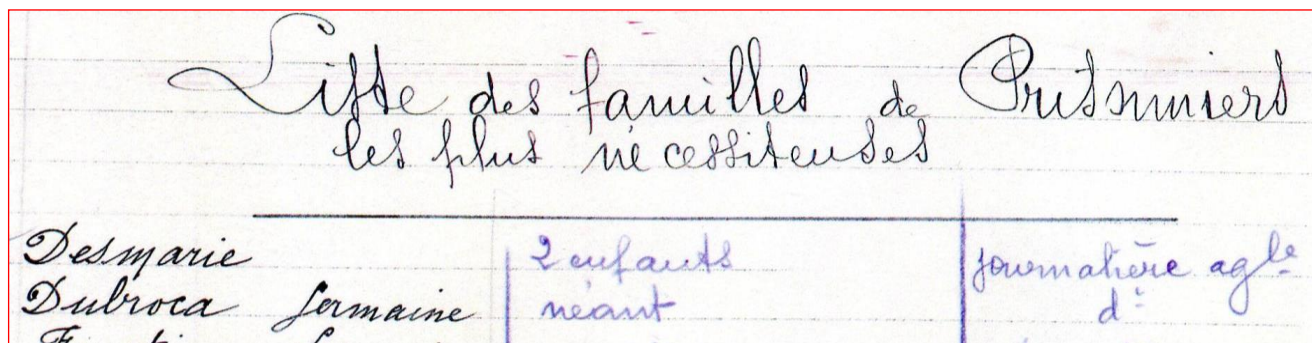 Liste des familles de Prisonniers
les plus nécessiteuses
Desmarie 2 enfants journalière agle
Dubroca Germaine néant do